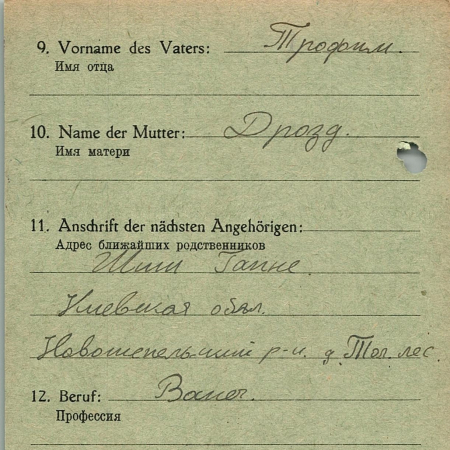 9. Vorname des Vaters: Трофим.
Имя отца
10. Name der Mutter: Дрозд.
Имя матери
11. Anschrift der nächsten Angehörigen:
Адрес ближайших родственников
Гапне.
Киевская обл.
р-н. д. Тол. лес.
12. Beruf:
Профессия